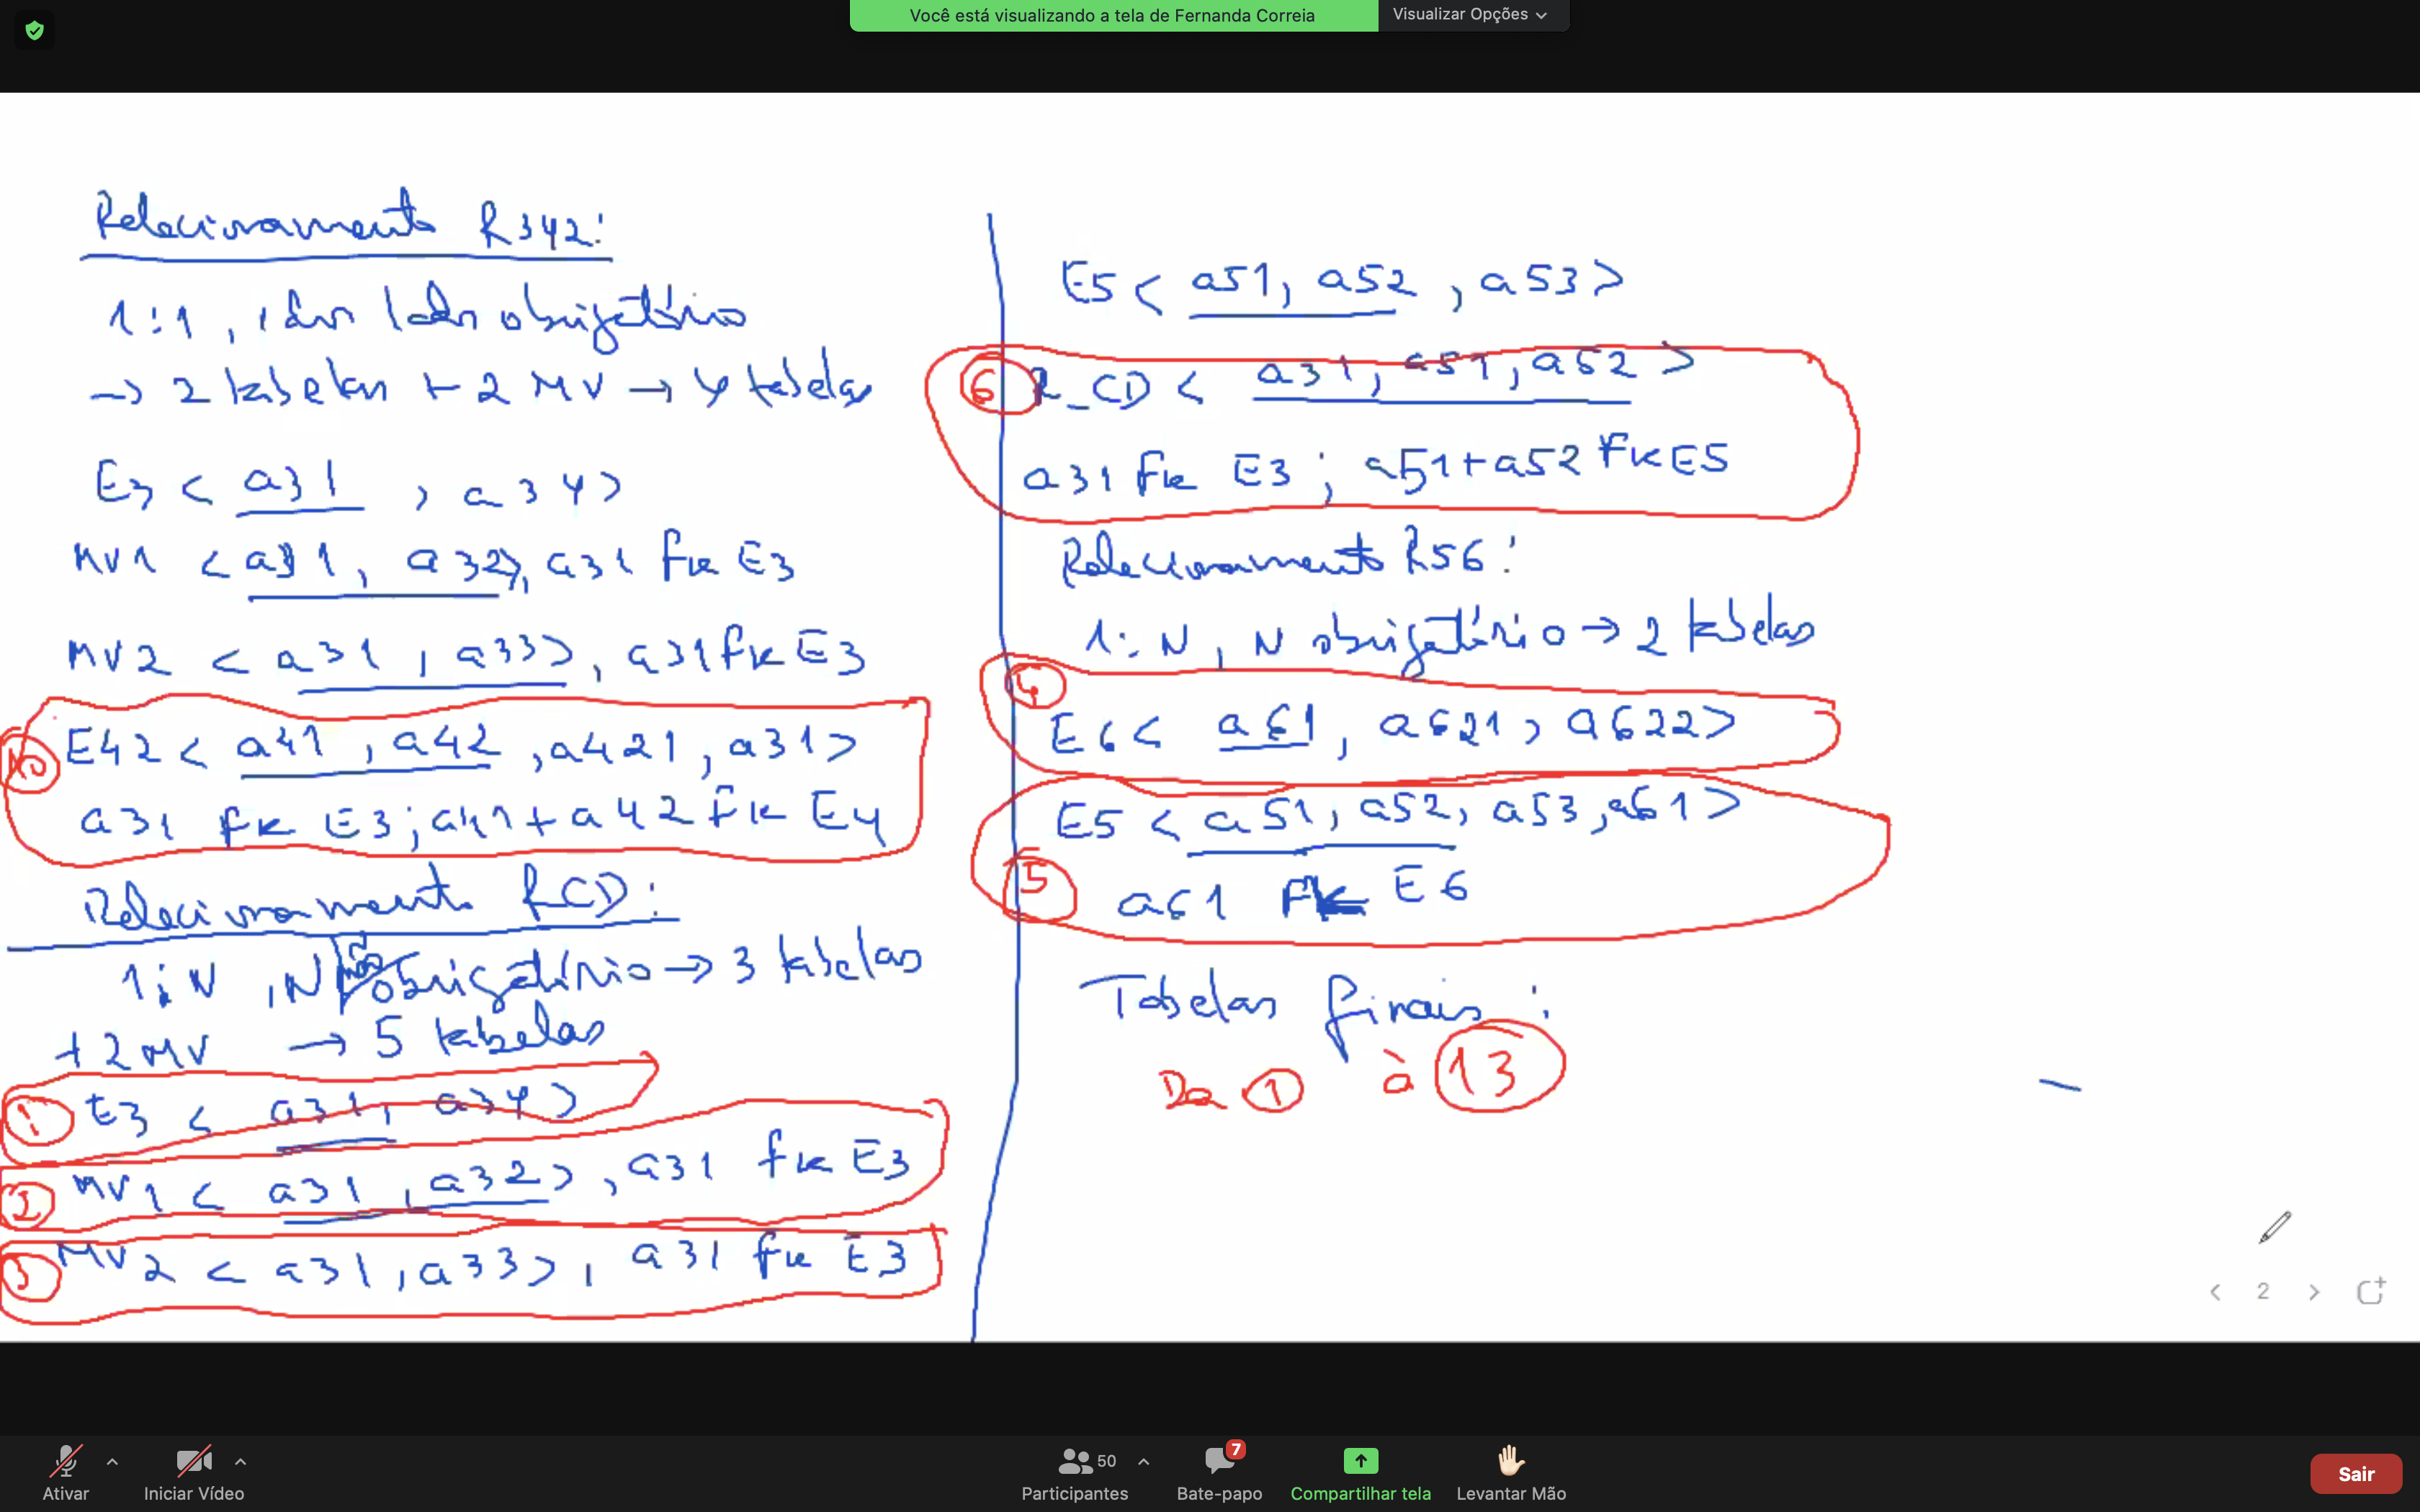 Você está visualizando a tela de Fernanda Correia
Visualizar Opções
Relacionamento R342:
1:1, 1 dos lados obrigatório
→ 2 tabelas + 2 MV → 4 tabelas
E3 < a31 , a34>
MV1 < a31, a32>, a31 fk E3
MV2 < a31, a33>, a31 fk E3
10 E42 < a41, a42, a421, a31>
a31 fk E3; a41+a42 fk E4
Relacionamento RCD:
1:N, N não obrigatório → 3 tabelas
+2 MV → 5 tabelas
1 E3 < a31, a34>
2 MV1 < a31, a32>, a31 fk E3
3 MV2 < a31, a33>, a31 fk E3
E5 < a51, a52, a53>
6 R_CD < a31, a51, a52>
a31 fk E3; a51+a52 fk E5
Relacionamento R56:
1:N, N obrigatório → 2 tabelas
4 E6 < a61, a621, a622>
5 E5 < a51, a52, a53, a61>
a61 fk E6
Tabelas finais:
Da 1 à 13
2
Ativar
Iniciar Vídeo
50
Participantes
7
Bate-papo
Compartilhar tela
Levantar Mão
Sair